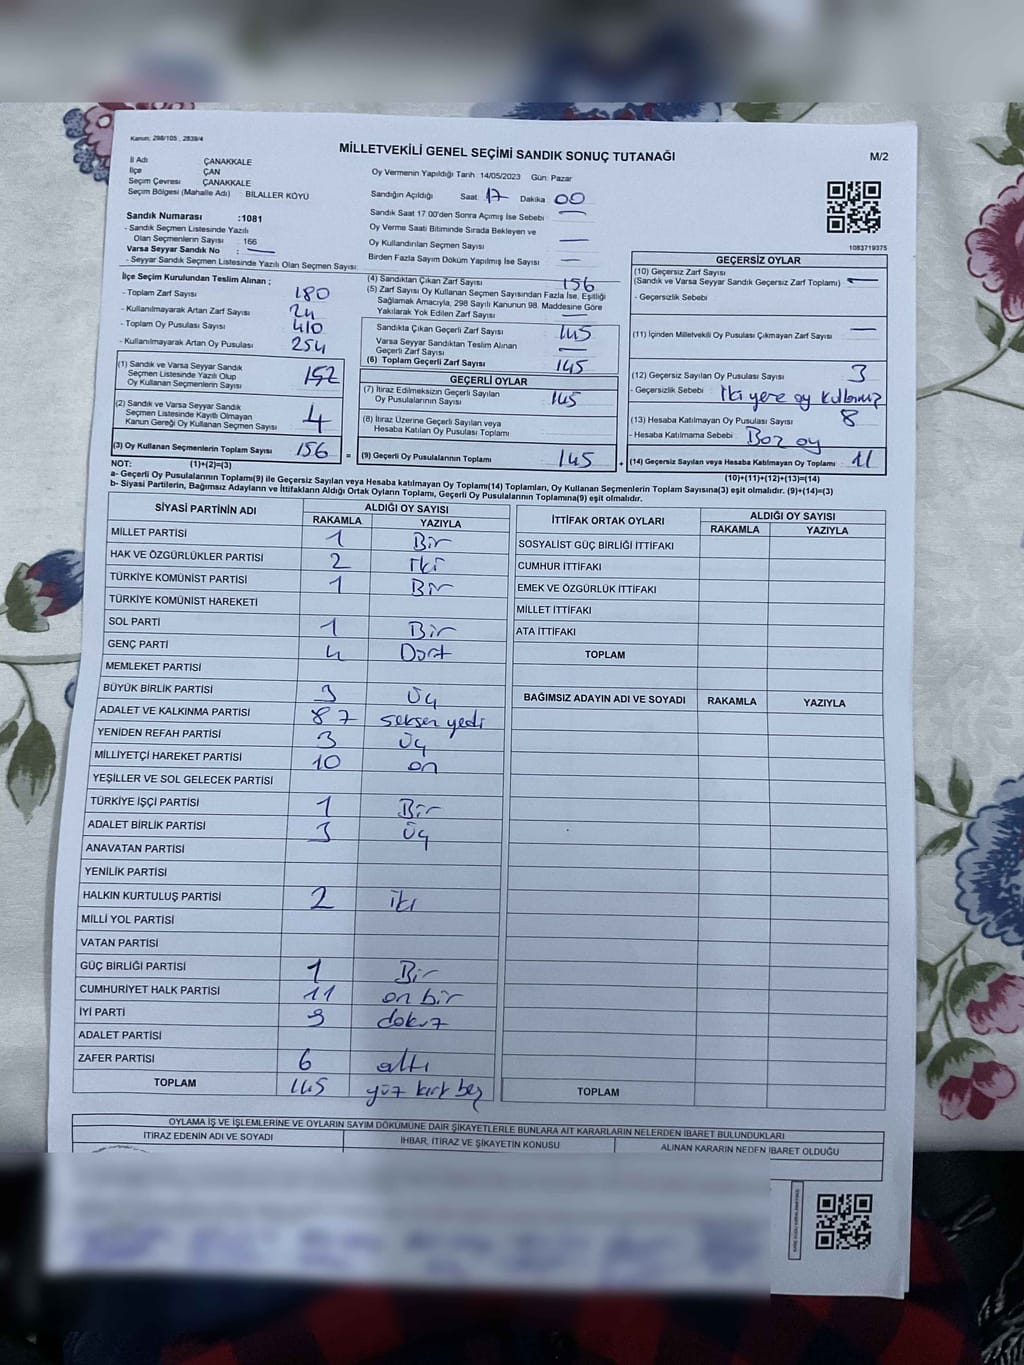 Kanun: 298/105 , 2839/4
MİLLETVEKİLİ GENEL SEÇİMİ SANDIK SONUÇ TUTANAĞI
M/2
İl Adı ÇANAKKALE
İlçe ÇAN
Seçim Çevresi ÇANAKKALE
Seçim Bölgesi (Mahalle Adı) : BİLALLER KÖYÜ
Sandık Numarası :1081
- Sandık Seçmen Listesinde Yazılı
Olan Seçmenlerin Sayısı : 166
Varsa Seyyar Sandık No : —
- Seyyar Sandık Seçmen Listesinde Yazılı Olan Seçmen Sayısı:
Oy Vermenin Yapıldığı Tarih :14/05/2023 Gün: Pazar
Sandığın Açıldığı Saat 17 Dakika 00
Sandık Saat 17:00'den Sonra Açımış İse Sebebi —
Oy Verme Saati Bitiminde Sırada Bekleyen ve
Oy Kullandırılan Seçmen Sayısı —
Birden Fazla Sayım Döküm Yapılmış İse Sayısı —
1083719375
İlçe Seçim Kurulundan Teslim Alınan ;
- Toplam Zarf Sayısı 180
- Kullanılmayarak Artan Zarf Sayısı 24
- Toplam Oy Pusulası Sayısı 410
- Kullanılmayarak Artan Oy Pusulası 254
(1) Sandık ve Varsa Seyyar Sandık
Seçmen Listesinde Yazılı Olup
Oy Kullanan Seçmenlerin Sayısı 152
(2) Sandık ve Varsa Seyyar Sandık
Seçmen Listesinde Kayıtlı Olmayan
Kanun Gereği Oy Kullanan Seçmen Sayısı 4
(3) Oy Kullanan Seçmenlerin Toplam Sayısı 156 =
(4) Sandıktan Çıkan Zarf Sayısı 156
(5) Zarf Sayısı Oy Kullanan Seçmen Sayısından Fazla İse, Eşitliği
Sağlamak Amacıyla, 298 Sayılı Kanunun 98. Maddesine Göre
Yakılarak Yok Edilen Zarf Sayısı —
Sandıkta Çıkan Geçerli Zarf Sayısı 145
Varsa Seyyar Sandıktan Teslim Alınan
Geçerli Zarf Sayısı —
(6) Toplam Geçerli Zarf Sayısı 145
GEÇERLİ OYLAR
(7) İtiraz Edilmeksizin Geçerli Sayılan
Oy Pusulalarının Sayısı 145
(8) İtiraz Üzerine Geçerli Sayılan veya
Hesaba Katılan Oy Pusulası Toplamı
(9) Geçerli Oy Pusulalarının Toplamı 145 +
GEÇERSİZ OYLAR
(10) Geçersiz Zarf Sayısı
(Sandık ve Varsa Seyyar Sandık Geçersiz Zarf Toplamı) —
- Geçersizlik Sebebi
(11) İçinden Milletvekili Oy Pusulası Çıkmayan Zarf Sayısı —
(12) Geçersiz Sayılan Oy Pusulası Sayısı 3
- Geçersizlik Sebebi : İki yere oy
(13) Hesaba Katılmayan Oy Pusulası Sayısı 8
- Hesaba Katılmama Sebebi : Boz oy
(14) Geçersiz Sayılan veya Hesaba Katılmayan Oy Toplamı 11
NOT: (1)+(2)=(3)
(10)+(11)+(12)+(13)=(14)
a- Geçerli Oy Pusulalarının Toplamı(9) ile Geçersiz Sayılan veya Hesaba Katılmayan Oy Toplamı(14) Toplamları, Oy Kullanan Seçmenlerin Toplam Sayısına(3) eşit olmalıdır. (9)+(14)=(3)
b- Siyasi Partilerin, Bağımsız Adayların ve İttifakların Aldığı Ortak Oyların Toplamı, Geçerli Oy Pusulalarının Toplamına(9) eşit olmalıdır.
SİYASİ PARTİNİN ADI ALDIĞI OY SAYISI
RAKAMLA YAZIYLA
MİLLET PARTİSİ 1 Bir
HAK VE ÖZGÜRLÜKLER PARTİSİ 2 iki
TÜRKİYE KOMÜNİST PARTİSİ 1 Bir
TÜRKİYE KOMÜNİST HAREKETİ
SOL PARTİ 1 Bir
GENÇ PARTİ 4 Dört
MEMLEKET PARTİSİ
BÜYÜK BİRLİK PARTİSİ 3 üç
ADALET VE KALKINMA PARTİSİ 87 seksen yedi
YENİDEN REFAH PARTİSİ 3 üç
MİLLİYETÇİ HAREKET PARTİSİ 10 on
YEŞİLLER VE SOL GELECEK PARTİSİ
TÜRKİYE İŞÇİ PARTİSİ 1 Bir
ADALET BİRLİK PARTİSİ 3 üç
ANAVATAN PARTİSİ
YENİLİK PARTİSİ
HALKIN KURTULUŞ PARTİSİ 2 iki
MİLLİ YOL PARTİSİ
VATAN PARTİSİ
GÜÇ BİRLİĞİ PARTİSİ 1 Bir
CUMHURİYET HALK PARTİSİ 11 on bir
İYİ PARTİ 9 dokuz
ADALET PARTİSİ
ZAFER PARTİSİ 6 altı
TOPLAM 145 yüz kırk beş
İTTİFAK ORTAK OYLARI ALDIĞI OY SAYISI
RAKAMLA YAZIYLA
SOSYALİST GÜÇ BİRLİĞİ İTTİFAKI
CUMHUR İTTİFAKI
EMEK VE ÖZGÜRLÜK İTTİFAKI
MİLLET İTTİFAKI
ATA İTTİFAKI
TOPLAM
BAĞIMSIZ ADAYIN ADI VE SOYADI RAKAMLA YAZIYLA
TOPLAM
OYLAMA İŞ VE İŞLEMLERİNE VE OYLARIN SAYIM DÖKÜMÜNE DAİR ŞİKAYETLERLE BUNLARA AİT KARARLARIN NELERDEN İBARET BULUNDUKLARI
İTİRAZ EDENİN ADI VE SOYADI İHBAR, İTİRAZ VE ŞİKAYETİN KONUSU ALINAN KARARIN NEDEN İBARET OLDUĞU